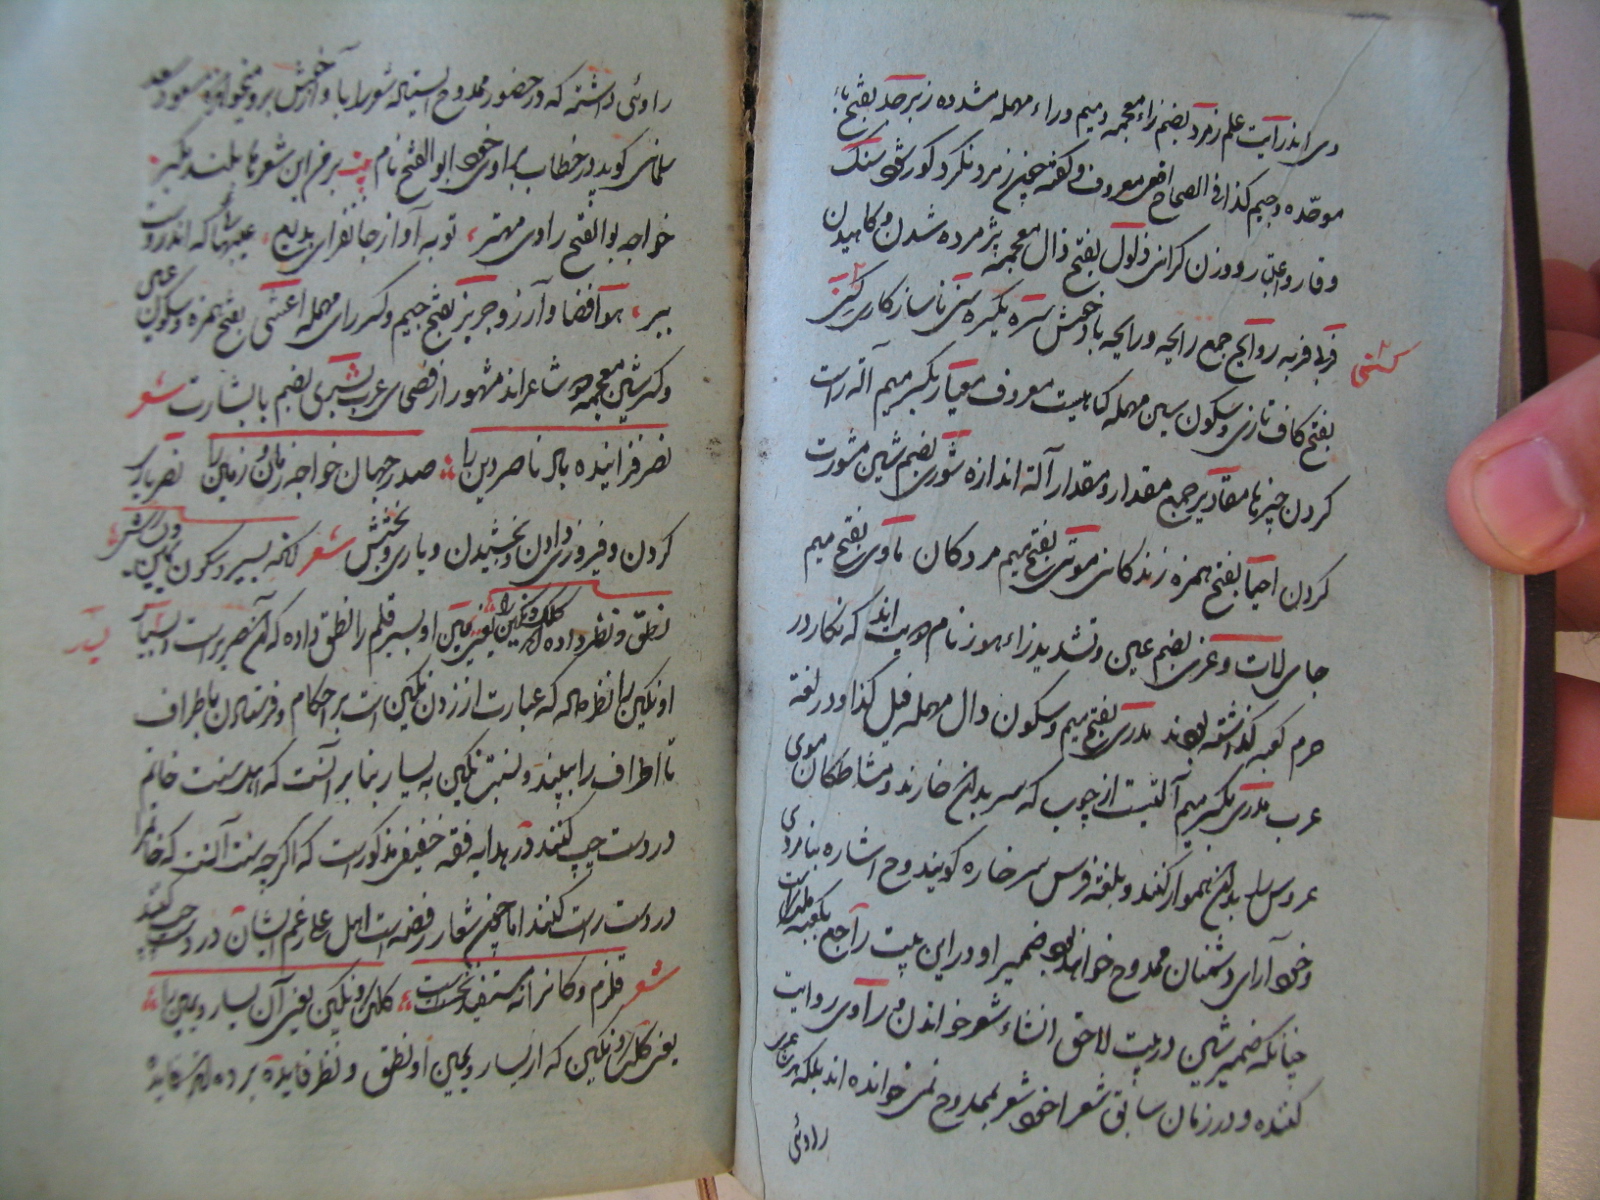 دی اند رایت علم زمرد بضم زاء معجمه و میم و راء مهمله مشدده زبرجد بفتح باء
موحده و جیم کذا فی الصحاح افعی معروف و گفته چون زمرد نگرد کور شود سنگ
وقار و اعتبار و وزن گرانی ذلول بفتح ذال معجمه پژمرده شدن و کاهیدن
فربا فربه روایح جمع رایحه و رایحه باد خوش ستره بکسره سنی ناسازکاری
کشنی
بفتح کاف تازی و سکون سین مهمله کیاهیست معروف معیار بکسر میم آله راست
کردن چیزها مقادیر جمع مقدار و مقدار آلة اندازه شوری بضم شین مشورت
کردن احیا بفتح همزه زندکانی موتی بفتح میم مردکان ماوی بفتح میم
جای لات و عزی بضم عین و تشدید زاء هوز نام دو بت اند که نگار در
حرم کعبه گذاشته بودند مدری بفتح میم و سکون دال مهمله قیل کذا و در لغة
عرب مدری بکسر میم آلتیست از چوب که سر بدان خارند و مشاطگان موی
عروس را بدان هموار کنند و بلغة فرس سرخاره گویند وح اشاره بنامردی
و خود آرای دشمنان ممدوح خواهد بود ضمیر او در این بیت راجع بکعبه
چنانکه ضمیر شین در بیت لاحق انشاء شعر خواندن و راوی روایت
کننده و در زمان سابق شعرا خود شعر بممدوح نمی خوانده اند بلکه هر شاعری
راوئی
راوئی داشته که در حضور ممدوح ایستاده شعر را با آواز خوش برو میخوانده مسعود سعد
سلمان گوید در خطاب براوی خود ابوالفتح نام بیت بر فرین این شعرها بلند بکیر
خواجه بوالفتح راوی مهتر تو به آواز جانفزای بدیع عیبهای که اندروست
ببر هوا فضا و آرزو جریر بفتح جیم و کسر رای مهمله اعشی بفتح همزه و سکون عین
و کسر شین معجمه دو شاعراند مشهور از فصحای عرب بشری بضم با بشارت شعر
نصر فزاینده باد ناصر دین را صدر جهان خواجه زمان و زمین را نصر یاری
کردن و فیروزی دادن و بخشیدن و یاری و بخشش شعر آنکه بسیر و سکون یمین
نطق و نظر داده کلک و نگین را یعنی یمین او بسیر قلم را نطق داده که آن صریر است و یسار
یسار
او نگین را نظر داده که عبارت از زدن نگین است بر احکام و فرستادن باطراف
تا اطراف را ببیند و نسبت نگین به یسار بنا بر آنست که اهل سنت خاتم
در دست چپ کنند در هدایه فقه حنفی مذکورست که اگرچه سنت آنست که خاتم
در دست راست کنند اما چون شعار رفضه است اهل علی رغم ایشان در دست چپ کنند
شعر قلزم و کانرا نه مستفید نخست است کلک و نگین یعنی آن یسار و یمین را
یعنی کلک را و نگین که از یسار و یمین او نطق و نظر فایده برده اند